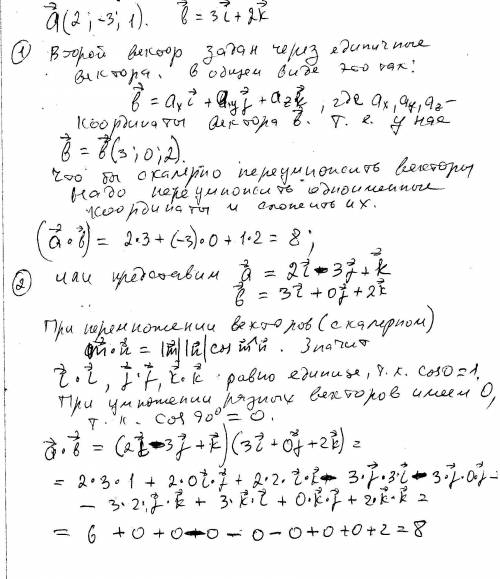 a⃗(2; -3; 1). b⃗ = 3i⃗ + 2k⃗
① Второй вектор задан через единичные
вектора. В общем виде это так:
b⃗ = aₓi⃗ + a_y j⃗ + a_z k⃗, где aₓ, a_y, a_z –
координаты вектора b⃗. Т. е. у нас
b⃗ = b⃗(3; 0; 2).
Что бы скалярно переумножить векторы
надо переумножить одноименные
координаты и сложить их.
(a⃗·b⃗) = 2·3 + (-3)·0 + 1·2 = 8;
② или представим a⃗ = 2i⃗ - 3j⃗ + k⃗
b⃗ = 3i⃗ + 0j⃗ + 2k⃗
При перемножении векторов (скалярном)
m⃗·n⃗ = |m⃗||n⃗| cos m⃗^n⃗. Значит
i⃗·i⃗, j⃗·j⃗, k⃗·k⃗ равно единице, т. к. cos0 = 1.
При умножении разных векторов имеем 0,
т. к. cos 90° = 0.
a⃗·b⃗ = (2i⃗ - 3j⃗ + k⃗)(3i⃗ + 0j⃗ + 2k⃗) =
= 2·3·1 + 2·0i⃗·j⃗ + 2·2·i⃗·k⃗ - 3j⃗·3i⃗ - 3·j⃗·0·j⃗ -
- 3·2·j⃗·k⃗ + 3·k⃗·i⃗ + 0·k⃗·j⃗ + 2·k⃗·k⃗ =
= 6 + 0 + 0 - 0 - 0 - 0 + 0 + 0 + 2 = 8